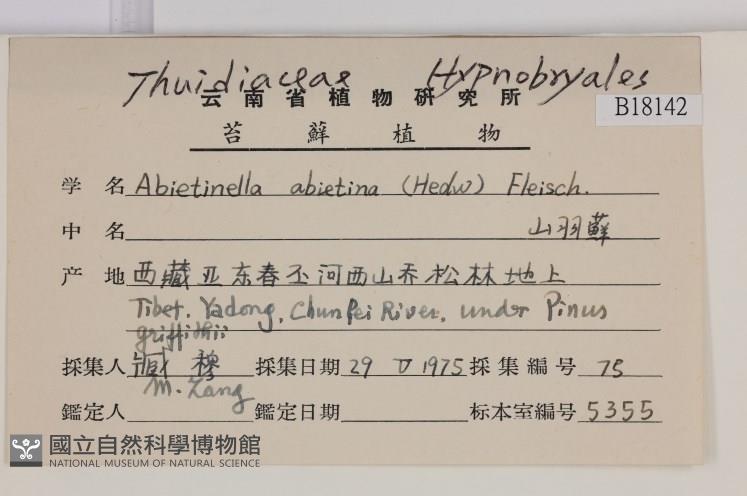 Thuidiaceae Hypnobryales
云南省植物研究所
B18142
苔蘚植物
学名 Abietinella abietina (Hedw) Fleisch.
中名 山羽蘚
产地 西藏亚东春丕河西山乔松林地上
Tibet. Yadong, Chunpei River, under Pinus
griffithii
採集人 臧穆 採集日期 29 V 1975 採集編号 75
M. Zang
鑑定人 鑑定日期 标本室編号 5355
國立自然科學博物館
NATIONAL MUSEUM OF NATURAL SCIENCE